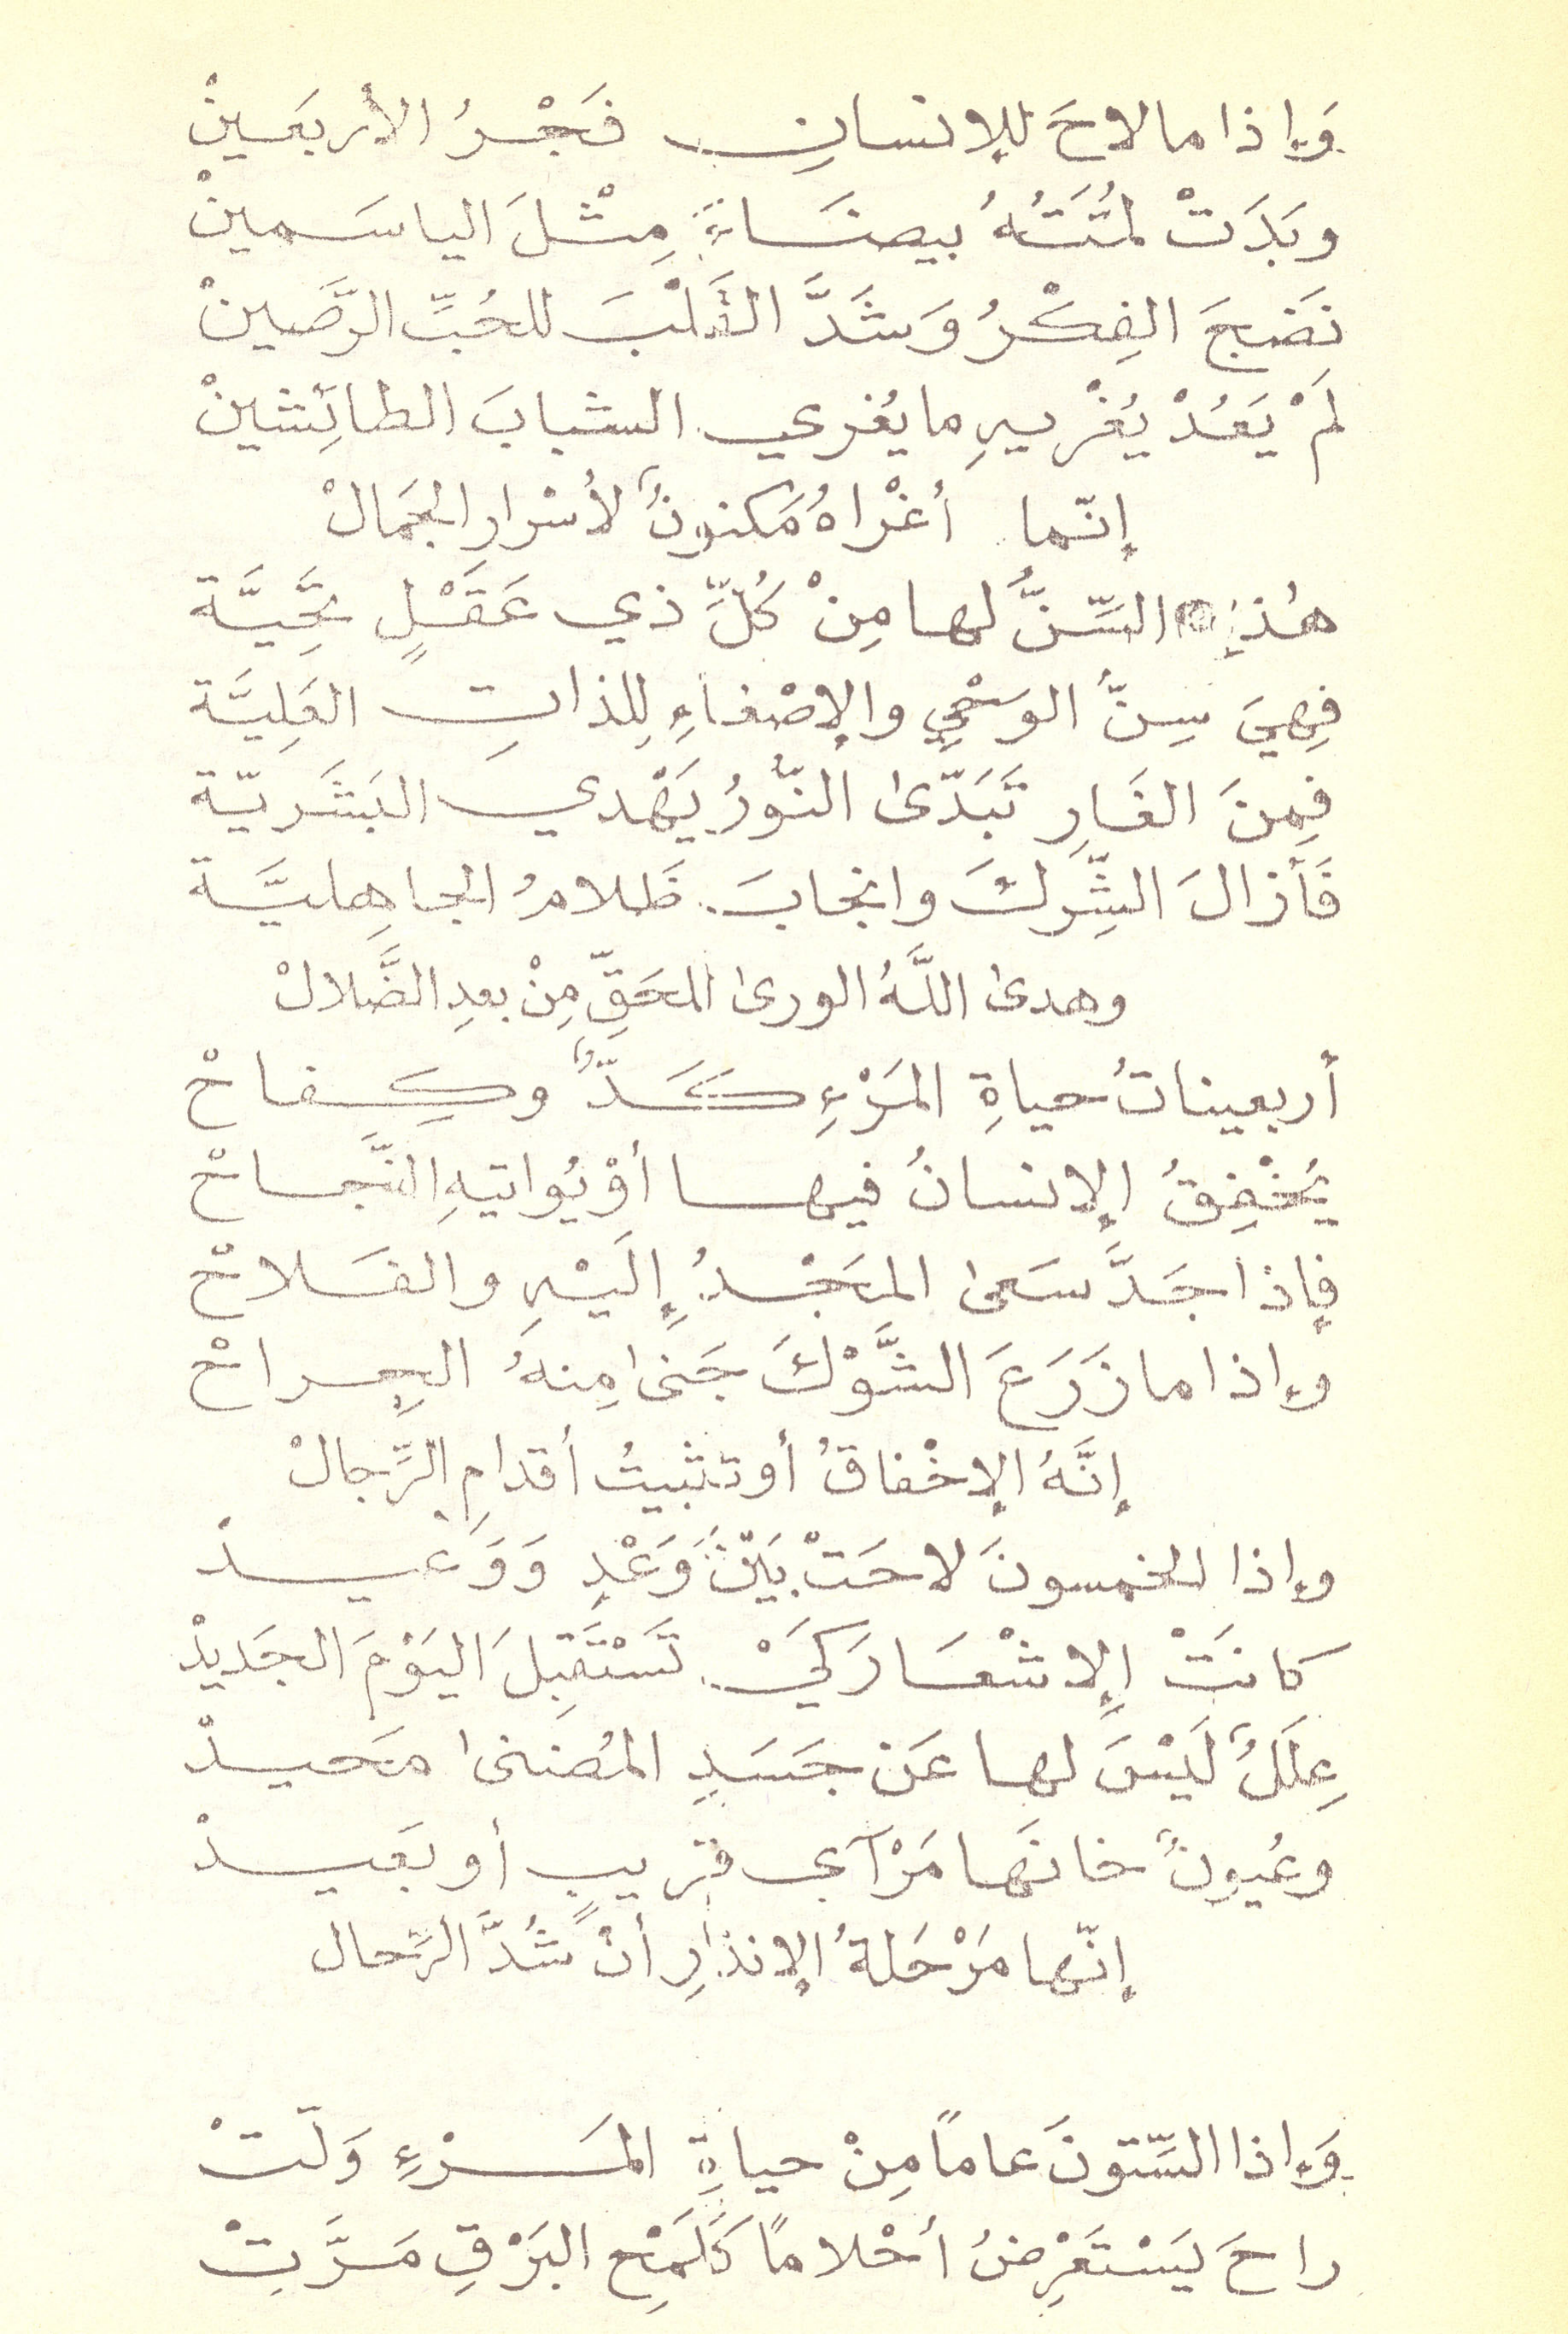 وَإذا ما لاحَ للإنسانِ فَجْرُ الأربَعَينْ
وبَدَتْ لمتَتُهُ بيضَاءَ مِثْلَ الياسَمينْ
نَضَجَ الفِكْرُ وَشَدَّ القَلْبَ للحُبِّ الرَّصَينْ
لَمْ يَعُدْ يُغْريهِ ما يُغري الشبابَ الطائِشينْ
إنّما أغْراهُ مَكنونٌ لأسْرارِ الجَمالْ
هٰذِهِ السِّنُّ لها مِنْ كُلِّ ذي عَقَلٍ تَحِيَّة
فِهيَ سِنُّ الوَحْيِ والإصْغاءِ لِلذاتِ العَلِيَّة
فِمِنَ الغَارِ تَبَدّىٰ النّورُ يَهْدي البَشَريّة
فَأزالَ الشِّركَ وانجابَ ظَلامُ الجاهِليَّة
وهدىٰ اللَّهُ الورىٰ للحَقِّ مِنْ بعدِ الضَّلالْ
أربعيناتُ حياةِ المَرْءِ كَدٌّ وكِفاحْ
يُخْفِقُ الإنسانُ فيها أوْ يُواتيهِ النَّجاحْ
فإذا جَدَّ سَعىٰ المَجْدُ إلَيْهِ والفَلاحْ
وإذا ما زَرَعَ الشَّوْكَ جَنىٰ مِنهُ الجِراحْ
إنَّهُ الإخْفاقُ أو تثبيتُ أقدامِ الرِّجالْ
وإذا الخمسونَ لاحَتْ بَيْنَ وَعْدٍ وَوَعيدْ
كانَتْ الإشْعَارَ كَيْ تَسْتَقبِلَ اليَوْمَ الجَديدْ
عِلَلٌ لَيْسَ لها عَن جَسَدِ المُضنىٰ مَحيدْ
وعُيونٌ خانَها مَرْآى قريبٍ أو بَعَيدْ
إنّها مَرْحَلةُ الإنذارِ أنْ شُدَّ الرِّحال
وَإذا السِّتونَ عاماً مِنْ حياةِ المَرْءِ وَلّتْ
راحَ يَسْتَعْرِضُ أحْلاماً كَلَمْحِ البَرْقِ مَرَّتِ